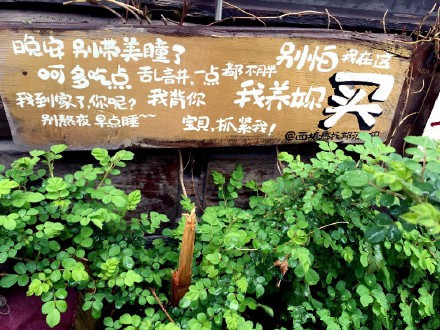 晚安 别带美瞳了 别怕 我在这
呵 多吃点 乱讲 一点都不胖 我养奶
我到家了，你呢？ 我背你 买
别熬夜 早点睡~~ 宝贝，抓紧我！